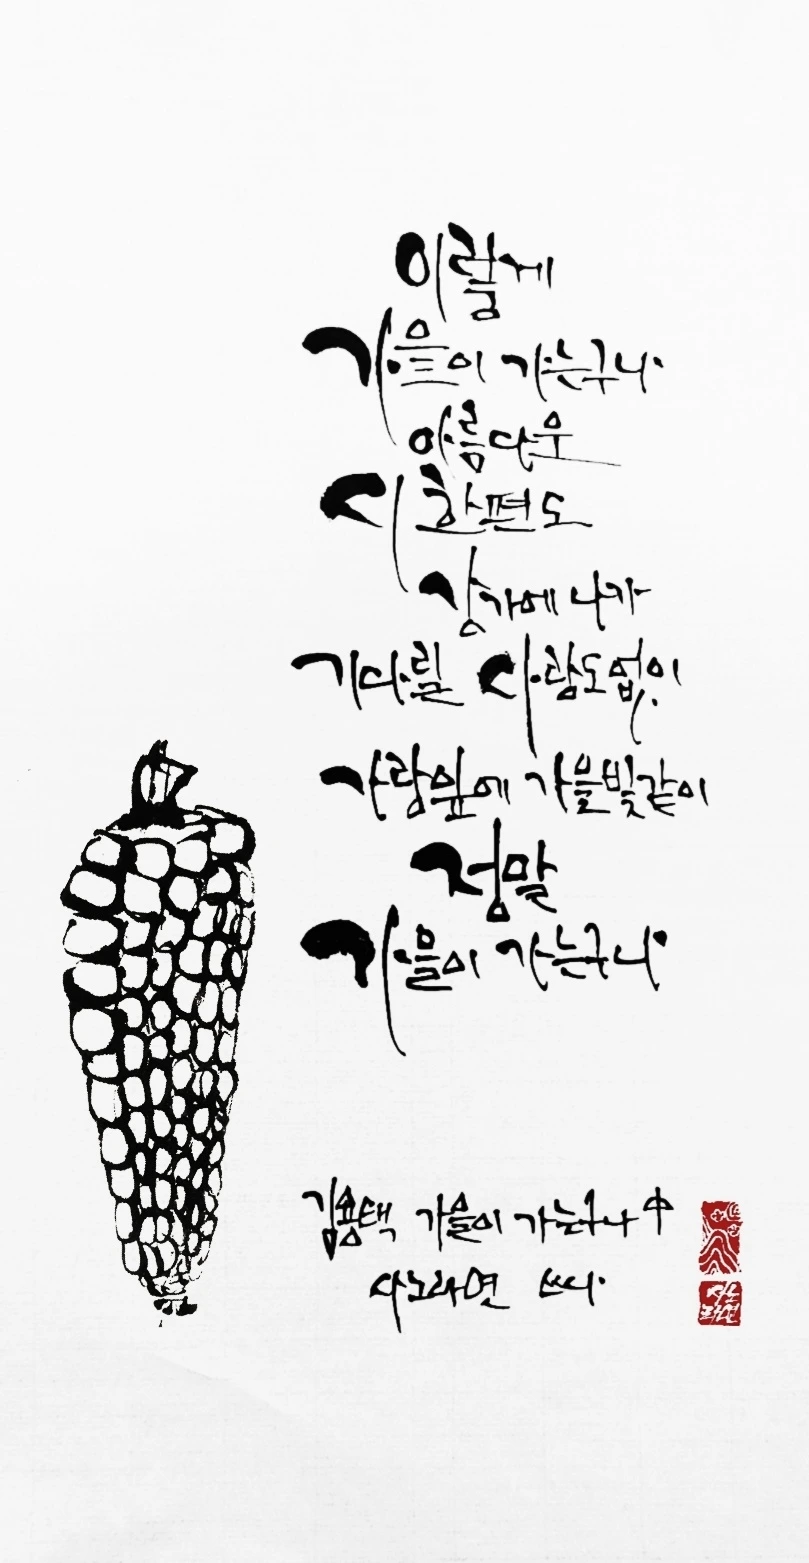 이렇게
가을이 가는구나
아름다운
시 한편도
강가에 나가
기다릴 사랑도 없이
가랑잎에 가을빛같이
정말
가을이 가는구나
김용택 가을이 가는구나 中
사노라면 쓰다
사노
라면